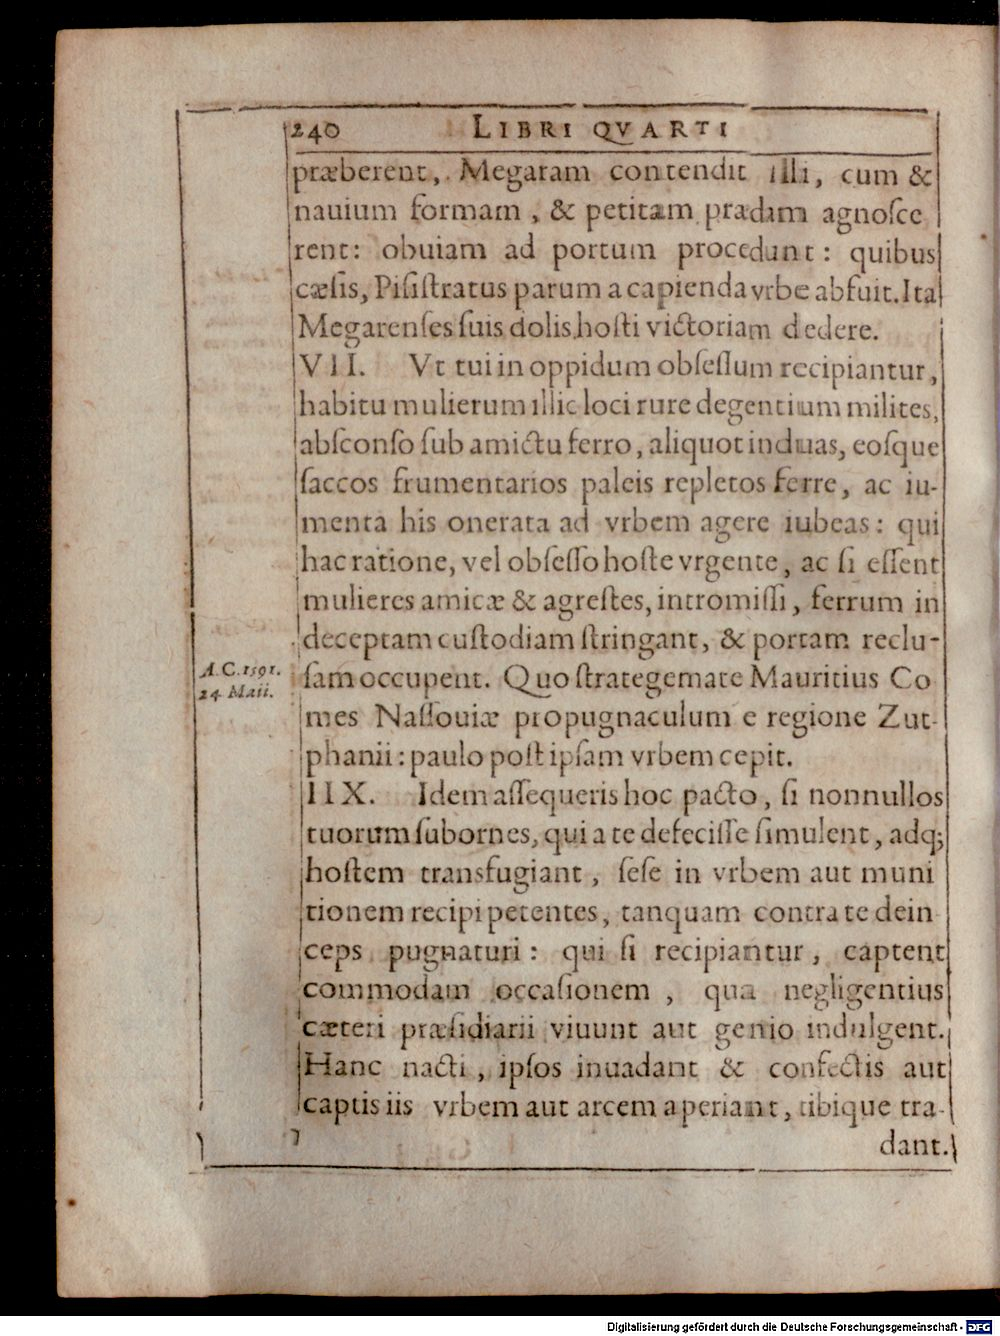 240 LIBRI QVARTI
præberent, Megaram contendit illi, cum &
nauium formam, & petitam prædam agnoſce
rent: obuiam ad portum procedunt: quibus
cæſis, Piſiſtratus parum a capienda vrbe abfuit. Ita
Megarenſes ſuis dolis hoſti victoriam dedere.
VII. Vt tui in oppidum obſeſſum recipiantur,
habitu mulierum illic loci rure degentium milites,
abſconſo ſub amictu ferro, aliquot induas, eoſque
ſaccos frumentarios paleis repletos ferre, ac iu-
menta his onerata ad vrbem agere iubeas: qui
hac ratione, vel obſeſſo hoſte vrgente, ac ſi eſſent
mulieres amicæ & agreſtes, intromiſſi, ferrum in
deceptam cuſtodiam ſtringant, & portam reclu-
A.C. 1591.
24 Maii.
ſam occupent. Quo ſtrategemate Mauritius Co
mes Naſſouiæ propugnaculum e regione Zut-
phanii: paulo poſt ipſam vrbem cepit.
IIX. Idem aſſequeris hoc pacto, ſi nonnullos
tuorum ſubornes, qui a te defeciſſe ſimulent, adq;
hoſtem transfugiant, ſeſe in vrbem aut muni
tionem recipi petentes, tanquam contra te dein
ceps pugnaturi: qui ſi recipiantur, captent
commodam occaſionem, qua negligentius
cæteri præſidiarii viuunt aut genio indulgent.
Hanc nacti, ipſos inuadant & confectis aut
captis iis vrbem aut arcem aperiant, tibique tra-
dant.
Digitalisierung gefördert durch die Deutsche Forschungsgemeinschaft - DFG